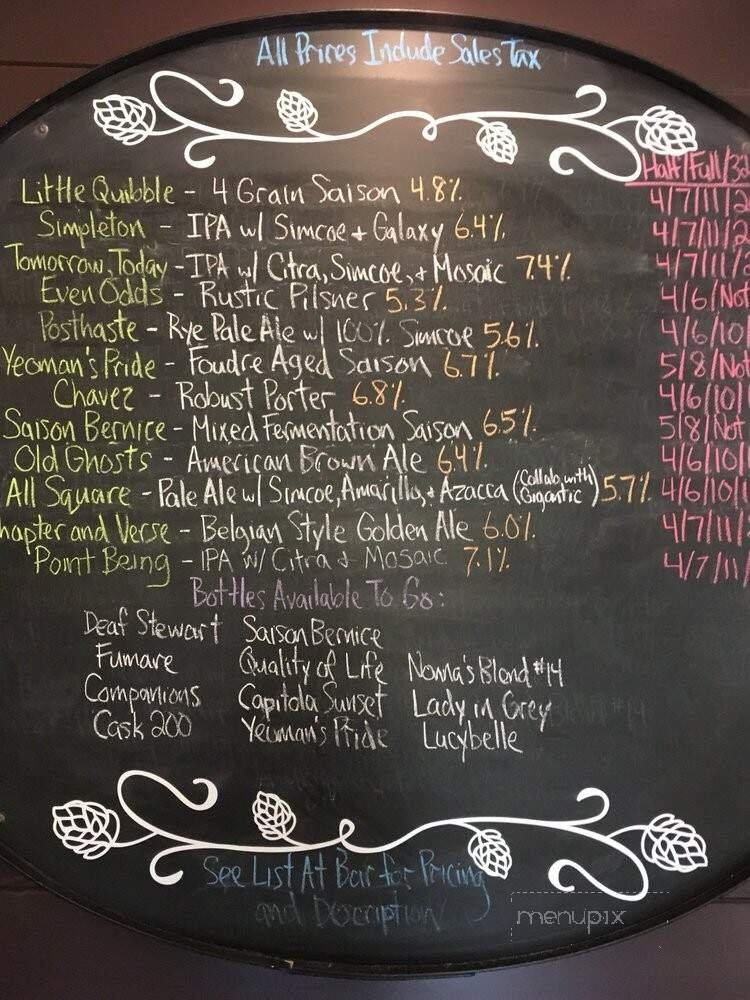 All Prices Include Sales Tax
Half/Full/32
Little Quibble - 4 Grain Saison 4.8% 4/7/11/2
Simpleton - IPA w/ Simcoe + Galaxy 6.4% 4/7/11/2
Tomorrow, Today - IPA w/ Citra, Simcoe, + Mosaic 7.4% 4/7/11/2
Even Odds - Rustic Pilsner 5.3% 4/6/Not
Posthaste - Rye Pale Ale w/ 100% Simcoe 5.6% 4/6/10/
Yeoman's Pride - Foudre Aged Saison 6.7% 5/8/Not
Chavez - Robust Porter 6.8% 4/6/10/
Saison Bernice - Mixed Fermentation Saison 6.5% 5/8/Not
Old Ghosts - American Brown Ale 6.4% 4/6/10/
All Square - Pale Ale w/ Simcoe, Amarillo, + Azacca (Collab. with Gigantic) 5.7% 4/6/10/
hapter and Verse - Belgian Style Golden Ale 6.0% 4/7/11/
Point Being - IPA w/ Citra + Mosaic 7.1% 4/7/11/
Bottles Available To Go:
Deaf Stewart Saison Bernice
Fumare Quality of Life Nonna's Blond #14
Companions Capitola Sunset Lady in Grey
Cask 200 Yeoman's Pride Lucybelle
See List At Bar for Pricing
and Description
menupix